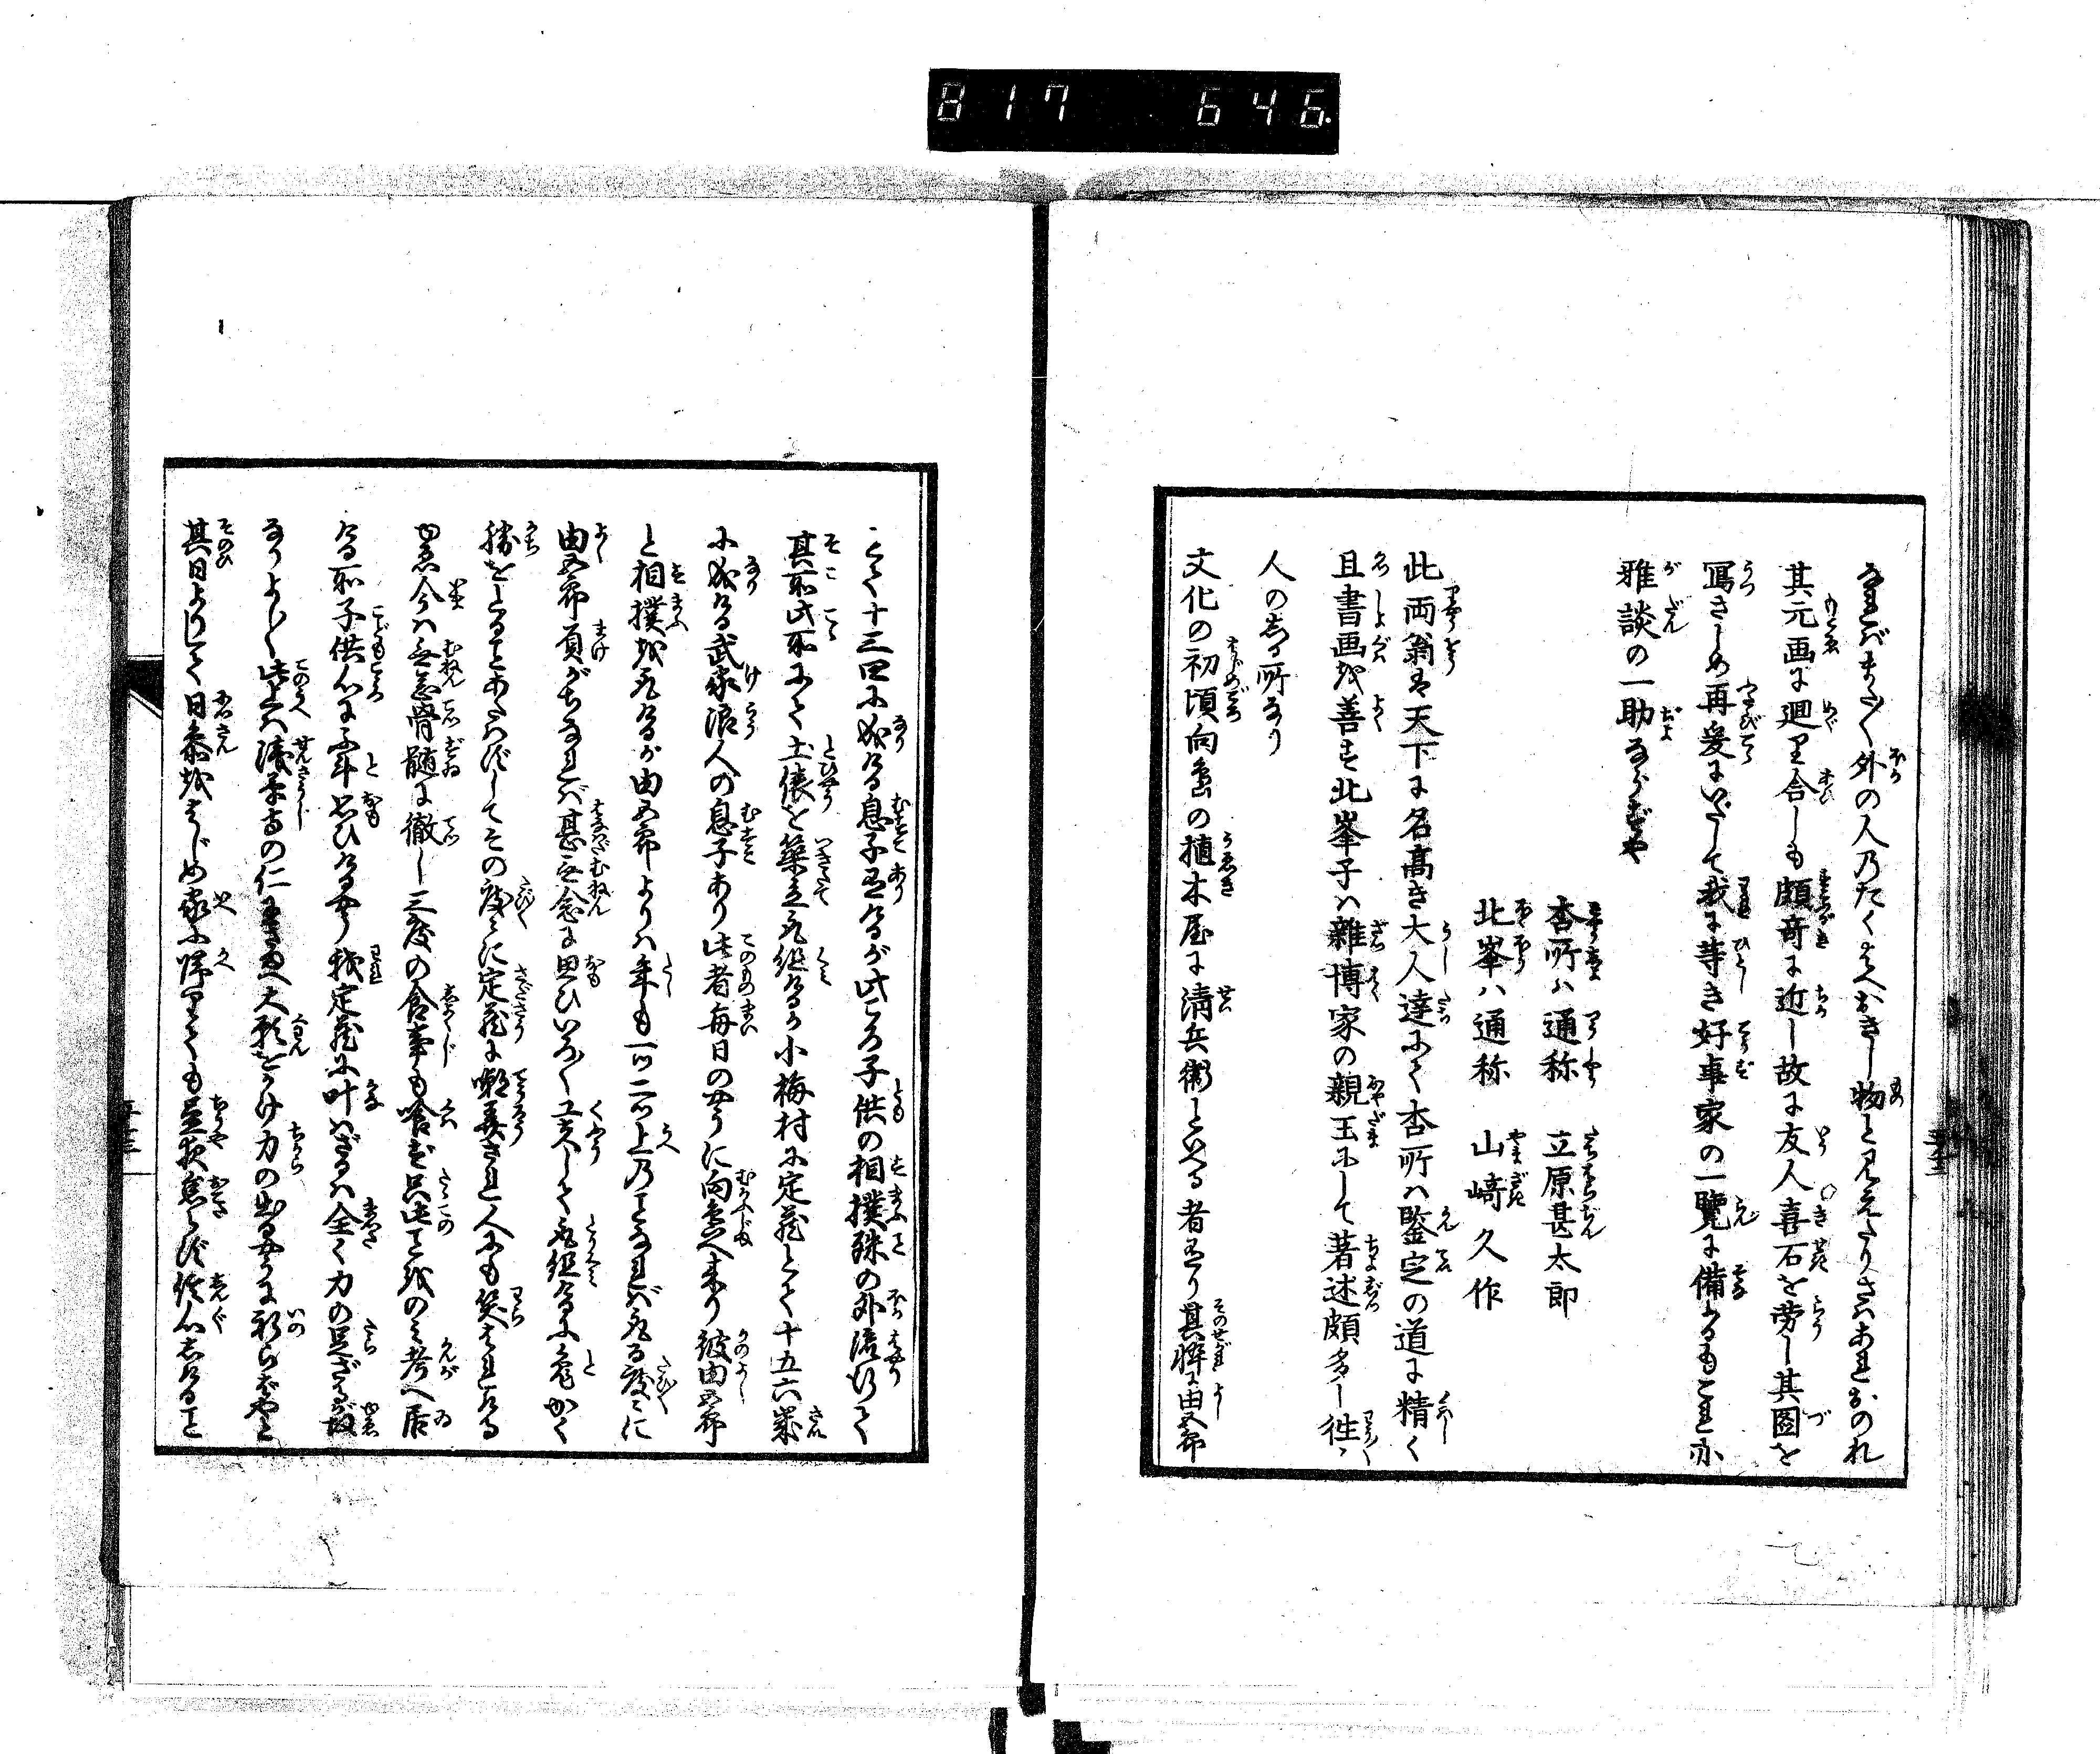 817 646.
なればまさしく外の人乃たくはへおきし物と見えたりさはあれおのれ
其元画に廻り合しも頗奇に近し故に友人喜石を労し其図を
写さしめ再爰にいだして我に等き好事家の一覧に備ふるもこれ亦
雅談の一助ならむや
杏所ハ通称 立原甚太郎
北峯ハ通称 山﨑久作
此両翁は天下に名高き大人達にて杏所ハ鑒定の道に精く
且書画を善す北峯子ハ雜博家の親玉にして著述頗多し徃〻
人の知る所なり
文化の初頃向島の植木屋に清兵衛といへる者有り其悴に由五郎
とて十三四に成ける息子有けるが此ころ子供の相撲殊の外流行て
其所此所にて土俵を築立取組けるが小梅村に定蔵とて十五六歳
に成ける武家浪人の息子あり此者毎日のやうに向島へ来り彼由五郎
と相撲を取けるが由五郎よりハ年も一ツ二ツ上の事なれば取る度〻に
由五郎負がちなれば甚無念に思ひいろ〳〵工夫して取組けるに兎かく
勝をとることあたはずしてその度〻に定蔵に嘲弄され人にも笑はれける
ゆゑ今ハ無念骨髄に徹し三度の食事も喰ず只此事をのみ考へ居
ける所子供心に不斗思ひけるやう我定蔵に叶ハざるハ全く力の足ざる故
なりよし〳〵此上ハ浅草寺の仁王さまへ大願をかけ力の出るやうに祈らばやと
其日よりして日参をはじめ家に帰りても昼夜怠らず信心しけること